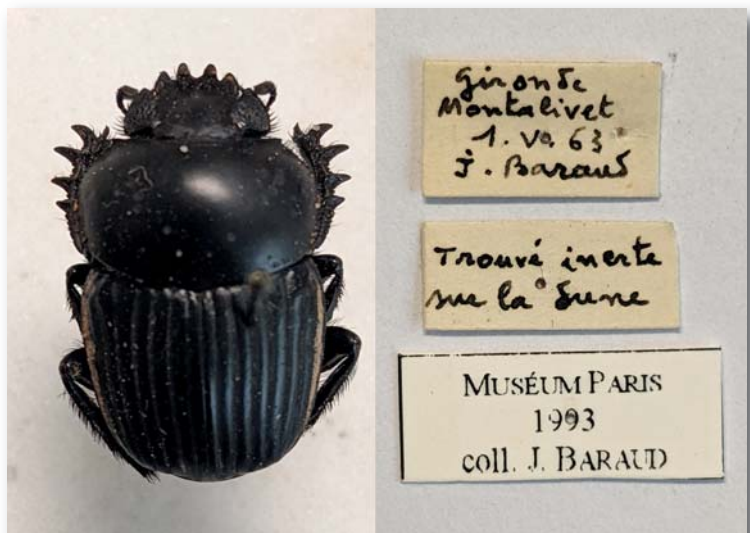 Gironde
Montalivet
1. VI. 63
J. Baraud
Trouvé inerte
sur la Dune
MUSÉUM PARIS
1993
coll. J. BARAUD